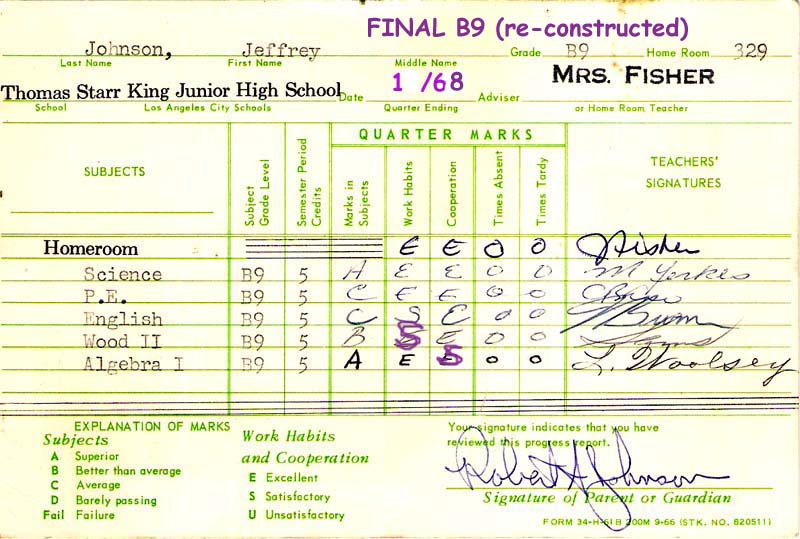 FINAL B9 (re-constructed)
Johnson, Jeffrey Grade B9 Home Room 329
Last Name First Name Middle Name
Thomas Starr King Junior High School Date 1 /68 Adviser MRS. FISHER
School Los Angeles City Schools Quarter Ending or Home Room Teacher
QUARTER MARKS
SUBJECTS Subject Grade Level Semester Period Credits Marks in Subjects Work Habits Cooperation Times Absent Times Tardy TEACHERS' SIGNATURES
Homeroom E E 0 0 Fisher
Science B9 5 A E E 0 0 M Yerkes
P.E. B9 5 C E E 0 0
English B9 5 C S E 0 0
Wood II B9 5 B S E 0 0
Algebra I B9 5 A E S 0 0 L. Woolsey
EXPLANATION OF MARKS
Subjects
A Superior
B Better than average
C Average
D Barely passing
Fail Failure
Work Habits
and Cooperation
E Excellent
S Satisfactory
U Unsatisfactory
Your signature indicates that you have
reviewed this progress report.
Robert A Johnson
Signature of Parent or Guardian
FORM 34-H-61B 200M 9-66 (STK. NO. 820511)